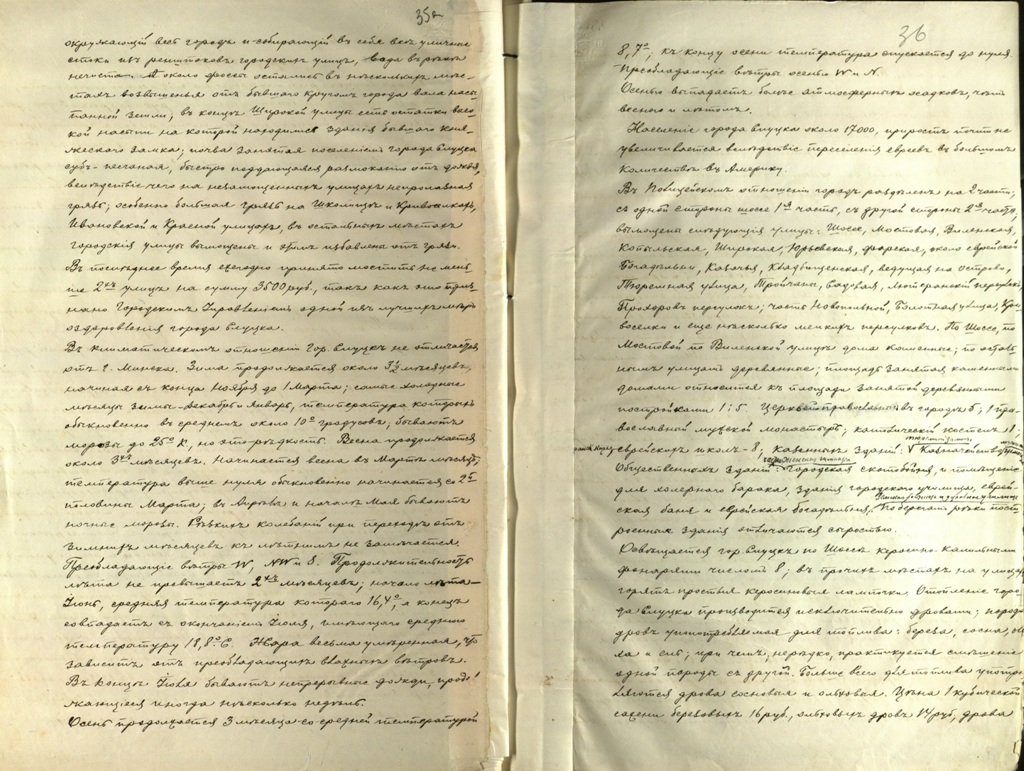 35а
окружающій весь городъ и собирающій въ себя все уличные
стоки изъ ренштоковъ городскихъ улицъ, вода въ
нечиста. А около остались въ нѣсколькихъ мѣс-
тахъ возвышенья отъ бывшаго кругомъ города вала насы-
панной земли; въ концѣ Широкой улицы есть остатки высо-
кой насыпи на которой находился зданія бывшаго кня-
жескаго замка; почва занятая поселеніемъ города Слуцка
субъ-песчаная, быстро поддающаяся размоканію отъ дождя,
вслѣдствіе чего на незамощенныхъ улицахъ непролазная
грязь; особенно большая грязь на Школищѣ и
Ивановской и Красной улицахъ, въ остальныхъ мѣстахъ
городскія улицы вымощены и избавлены отъ грязи.
Въ послѣднее время ежегодно принято мостить не мень-
ше 2хъ улицъ на сумму 3500 руб, такъ какъ это приз-
нано Городскимъ Управленіемъ одной изъ лучшихъ мѣръ
оздоровленія города Слуцка.
Въ климатическомъ отношеніи гор. Слуцкъ не отличается
отъ г. Минска. Зима продолжается около 3½ мѣсяцевъ,
начиная съ конца Ноября до 1 Марта; самые холодные
мѣсяцы зимы - Декабрь и Январь, температура которыхъ
обыкновенно въ среднемъ около 10° градусовъ, бываютъ
морозы до 25° R, но это рѣдкость. Весна продолжается
около 3хъ мѣсяцевъ. Начинается весна въ Мартѣ мѣсяцѣ;
температура выше нуля обыкновенно начинается со 2й
половины Марта; въ Апрѣлѣ и началѣ Мая бываютъ
ночные морозы. Рѣзкихъ колебаній при переходѣ отъ
зимнихъ мѣсяцевъ къ лѣтнимъ не замѣчается.
Преобладающіе вѣтры W, NW и S. Продолжительность
лѣта не превышаетъ 2хъ мѣсяцевъ; начало лѣта -
Іюнь, средняя температура котораго 16,4°, а конецъ
совпадаетъ съ окончаніемъ Іюля, имѣющаго среднюю
температуру 18,8° С. Жара весьма умѣренная, что
зависитъ отъ преобладающихъ влажныхъ вѣтровъ.
Въ концѣ Іюля бываютъ непрерывные дожди, продол-
жающіеся иногда нѣсколько недѣль.
Осень продолжается 3 мѣсяца со средней температурой
36
8,7°, къ концу осени температура опускается до нуля.
Преобладающіе вѣтры осенью W и N.
Осенью выпадаетъ болѣе атмосферныхъ осадковъ, чѣмъ
весною и лѣтомъ.
Населеніе города Слуцка около 17000, приростъ почти не
увеличивается вслѣдствіе переселенія евреевъ въ большомъ
количествѣ въ Америку.
Въ Полицейскомъ отношеніи городъ раздѣленъ на 2 части;
съ одной стороны шоссе 1я часть, съ другой стороны 2я часть,
вымощены слѣдующія улицы: Шоссе, Мостовая, Виленская,
Копыльская, Широкая, Юрьевская, Фарская, около еврейской
богадѣльни, Казачья, Кладбищенская, ведущая на Островъ,
Тюремная улица, Тройчаны, Садовая, Лютеранскій переулокъ,
Прохоровъ переулокъ; часть Новопольной, Болотная улица,
и еще нѣсколько мелкихъ переулковъ. По Шоссе, по
Мостовой по Виленской улицѣ дома каменные; по осталь-
нымъ улицамъ деревянные; площадь занятая каменными
домами относится къ площади занятой деревянными
постройками 1:5. Церквей православныхъ въ городѣ 5; 1 пра-
вославный мужской монастырь; католическій костелъ 1;
еврейскихъ школъ 8; казенныхъ зданій: Казначейство,
Общественныхъ зданій: городская скотобойня, и помѣщеніе
для холернаго барака, зданія городского училища, еврей-
ская баня и еврейская богадѣльня. По берегамъ рѣки пост-
роенныя зданія отличаются сыростью.
Освѣщается гор. Слуцкъ по Шоссе керосино-калильными
фонарями числомъ 8; въ прочихъ мѣстахъ на улицахъ
горятъ простыя керосиновыя лампочки. Отопленіе горо-
да Слуцка производится исключительно дровами; порода
дровъ употребляемая для топлива: береза, сосна, оль-
ха и ель; при чемъ, нерѣдко, практикуется смѣшеніе
одной породы съ другой. Больше всего для топлива употреб-
ляются дрова сосновыя и ольховыя. Цѣна 1 кубической
сажени березовыхъ 16 руб., ольховыхъ дровъ 14 руб, дрова